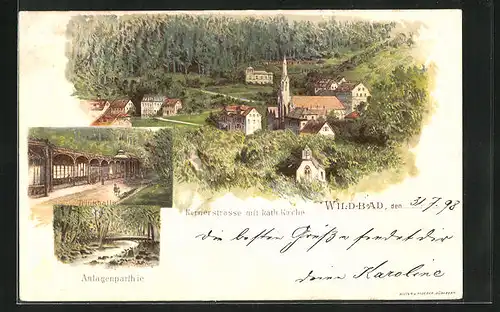 Trinkhalle
Kernerstrasse mit kath. Kirche
WILDBAD, den 31/7. 98
Die besten Grüße sendet dir
deine Karoline
Anlagenparthie